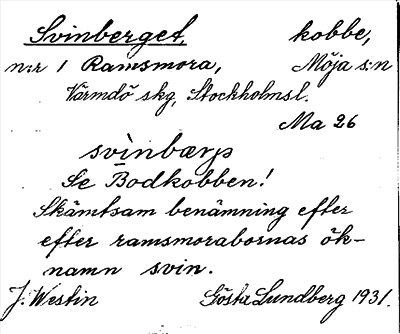 Svinberget, kobbe,
n:r 1 Ramsmora, Möja s:n
Värmdö skg, Stockholmsl.
Ma 26
svìnbærjs
Se Bodkobben!
Skämtsam benämning efter
efter ramsmorabornas ök-
namn svin.
J. Westin Gösta Lundberg 1931.